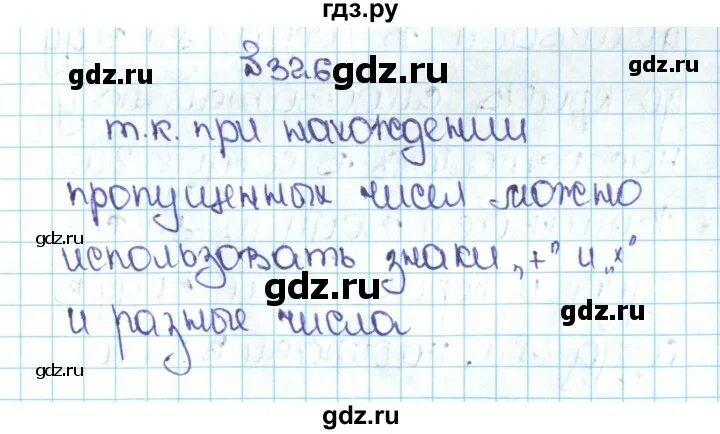 гдз.ру
gdz.ru
gdz.ru
№326
gdz.ru
т.к. при нахождении
пропущенных чисел можно
gdz.ru
использовать знаки „+" и „×"
gdz.ru
gdz.ru
и разные числа
gdz.ru
gdz.ru